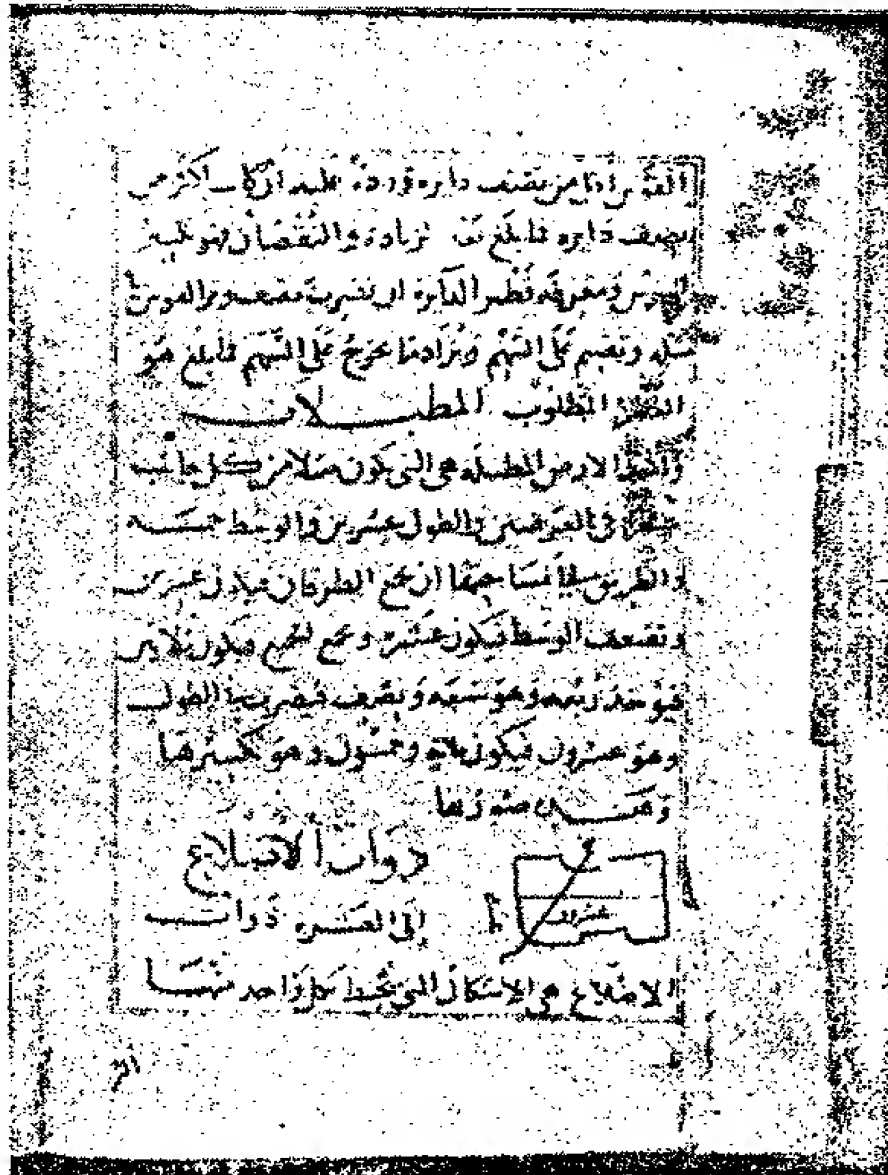 القوس اقل من نصف دايره وزده عليه ان كان اكثر من
نصف دايره فما بلغ بعد الزيادة والنقصان فهو تكسير
القوس ومعرفة قطر الدائرة ان تضرب نصف وتر القوس في
مثله وتقسم على السهم وتزاد ما يخرج على السهم فما بلغ هو
القطر المطلوب المطبــلات
واما الارض المطبله هي التي تكون مثلا من كل جانب
عشرة في العرضين والطول عشرين والوسط خمسه
والطريق في مساحتها ان تجمع الطرفان فيكون عشرين
وتضعف الوسط فيكون عشرة وتجمع الجميع فيكون ثلاثين
فيؤخذ ربعه وهو سبعه ونصف فيضرب في الطول
وهو عشرون فيكون مائة وخمسون وهو تكسيرها
وهــذه صورتها
ذوات الاضلاع
عشرون
الى العشره ذوات
الاضلاع هي الاشكال التي يحيط بكل واحد منهــا
اكثر